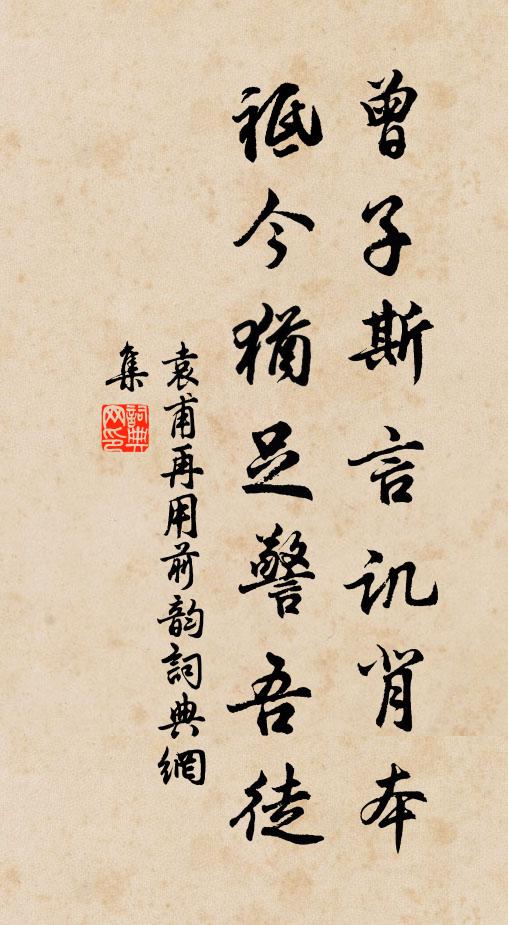 曾子斯言讥背本
祗今犹足警吾徒
袁甫再用前韵詞典網
集
詞典网印